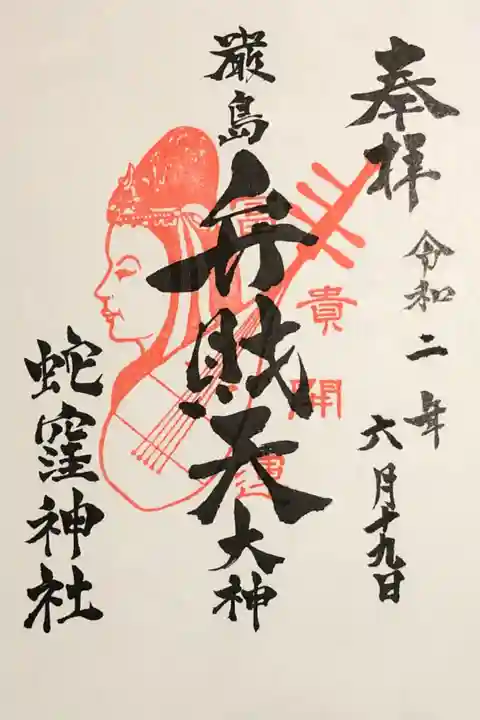 奉拝
令和二年
六月十九日
厳島
弁財天
大神
富貴開運
蛇窪神社